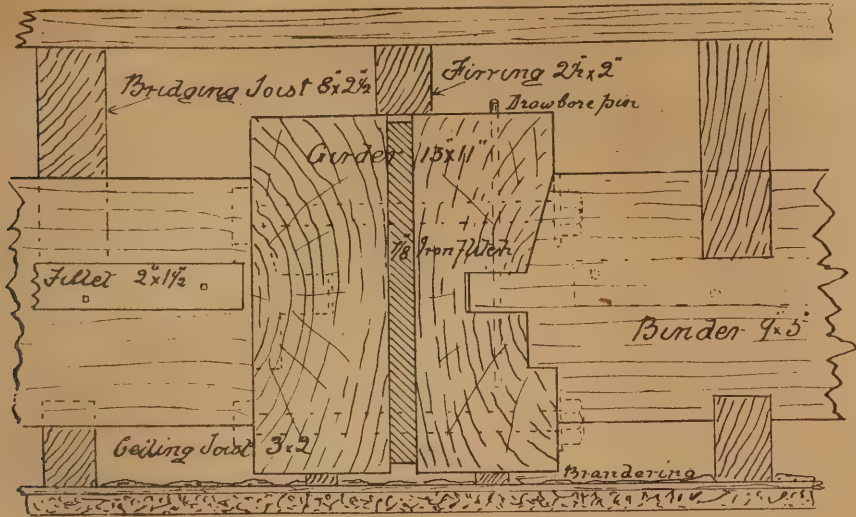 Bridging Joist 8"x2½"
Firring 2½"x2"
Drawbore pin
Girder 15"x11"
⅞" Iron Flitch
Fillet 2"x1½"
Binder 9"x5"
Ceiling Joist 3x2
Brandering